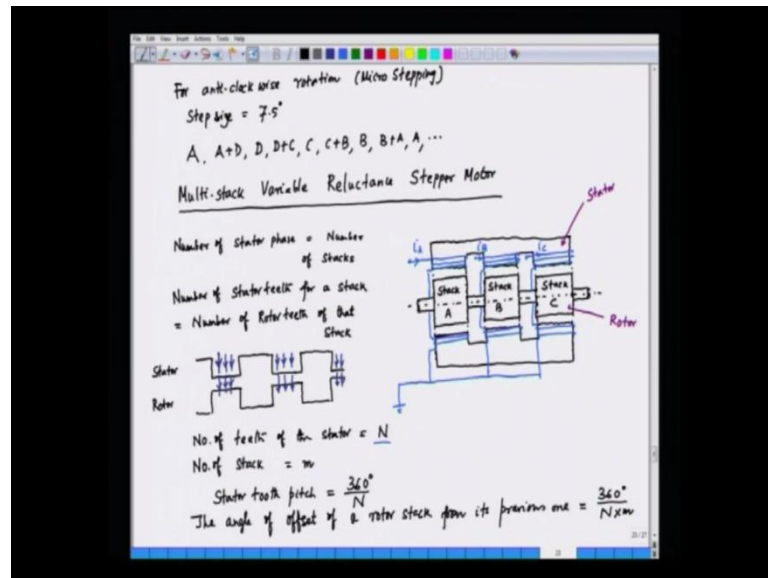 File Edit View Insert Actions Tools Help
For anti-clockwise rotation (Micro Stepping)
Step size = 7.5°
A, A+D, D, D+C, C, C+B, B, B+A, A, ...
Multi-stack Variable Reluctance Stepper Motor
Number of stator phase = Number
of stacks
Number of Stator teeth for a stack
= Number of Rotor teeth of that
Stack
Stator
Rotor
Stator
iA
iB
iC
Stack
A
Stack
B
Stack
C
Rotor
No. of teeth of the stator = N
No. of stack = m
Stator tooth pitch = 360°/N
The angle of offset of a rotor stack from its previous one = 360°/N×m